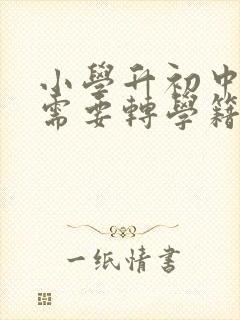 小學升初中
需要轉學籍
一纸情書